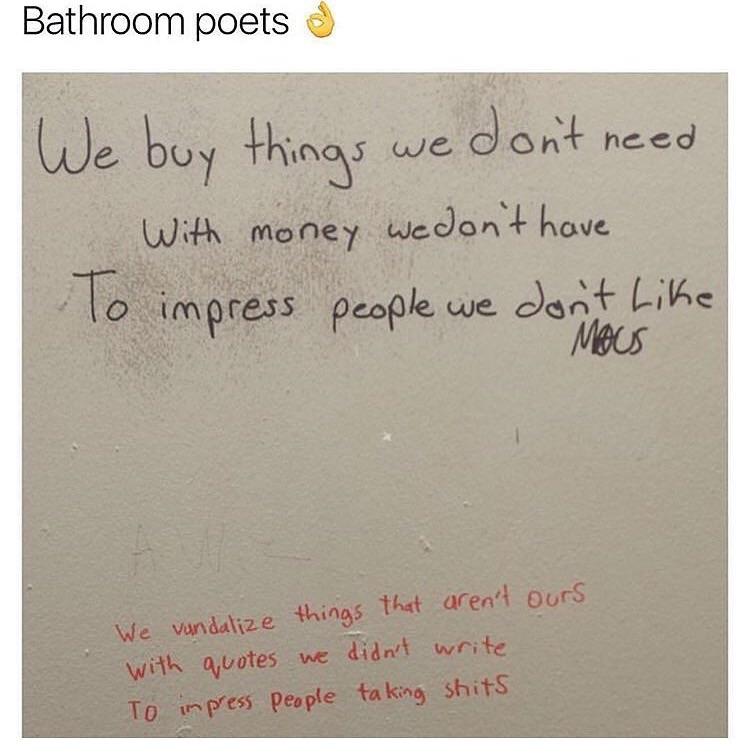 Bathroom poets 👌
We buy things we don't need
With money we don't have
To impress people we don't Like
We vandalize things that aren't ours
with quotes we didn't write
To impress people taking shits